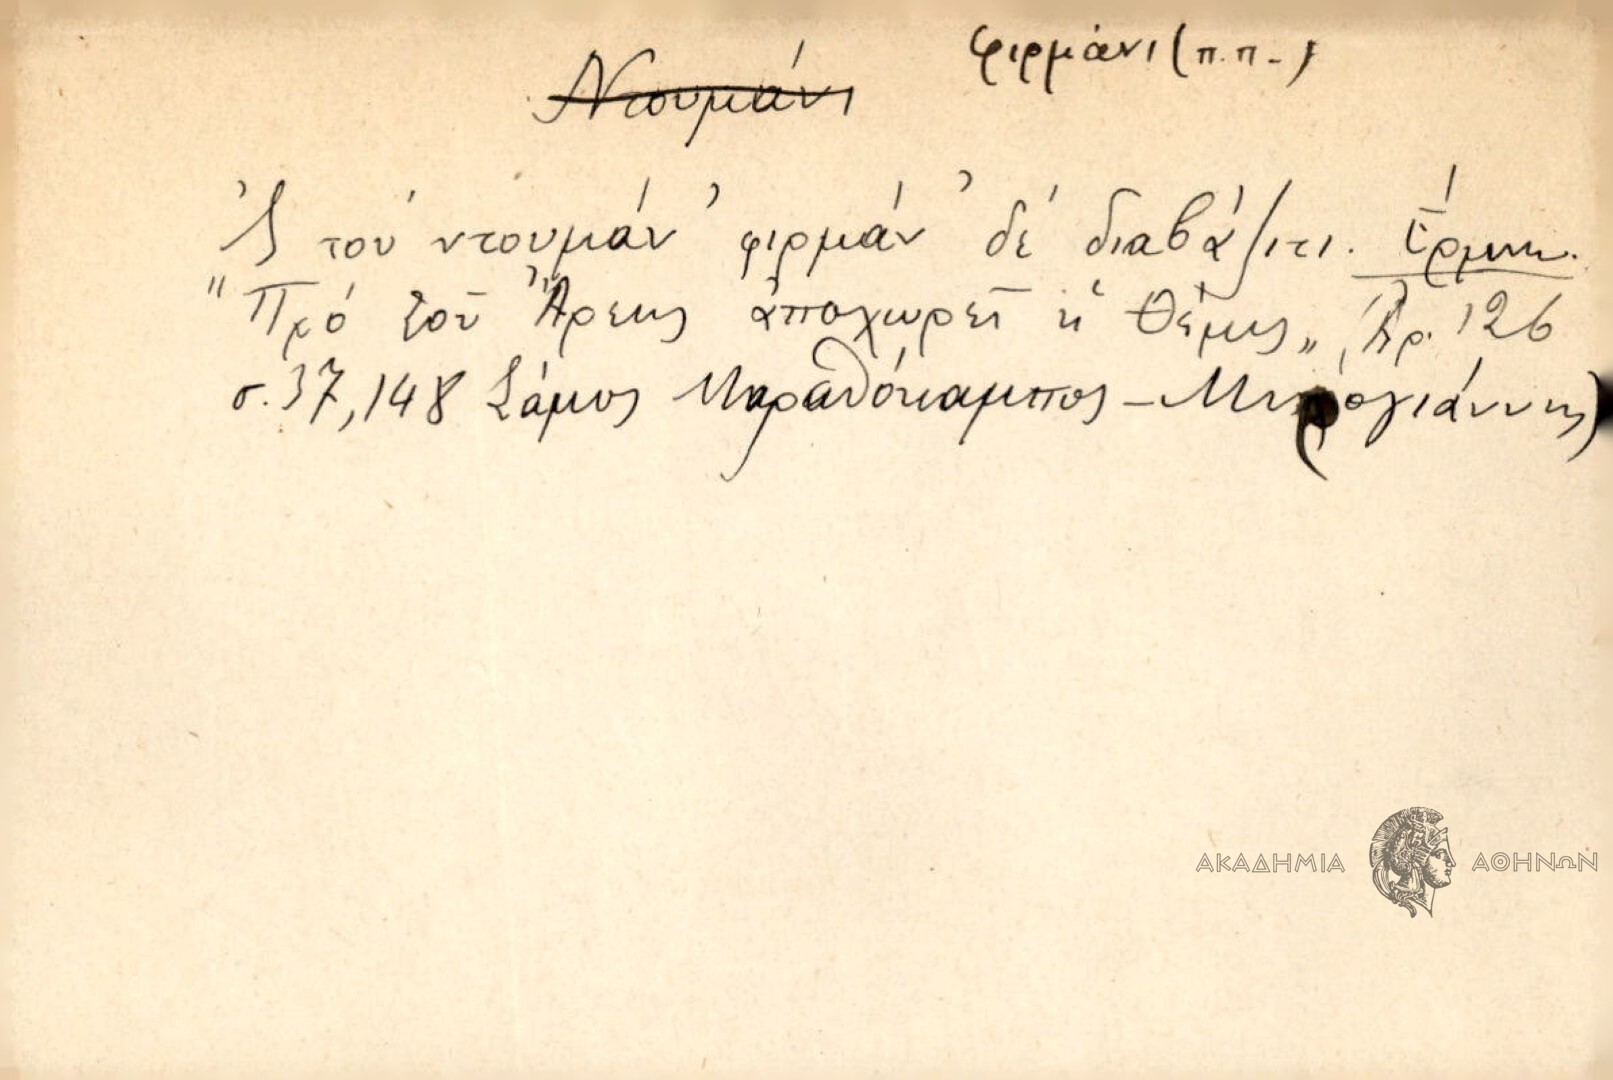 φιρμάνι (π.π.)
Ντουμάνι
'Σ του ντουμάν' φιρμάν' δέ διαβάζιτι. Ἑρμην.
"Πρό τοῦ Ἄρεως ἀποχωρεῖ ἡ Θέμις„ Ἀρ. 126
σ. 37, 148 Σάμος Μαραθόκαμπος –
ΑΚΑΔΗΜΙΑ ΑΘΗΝΩΝ